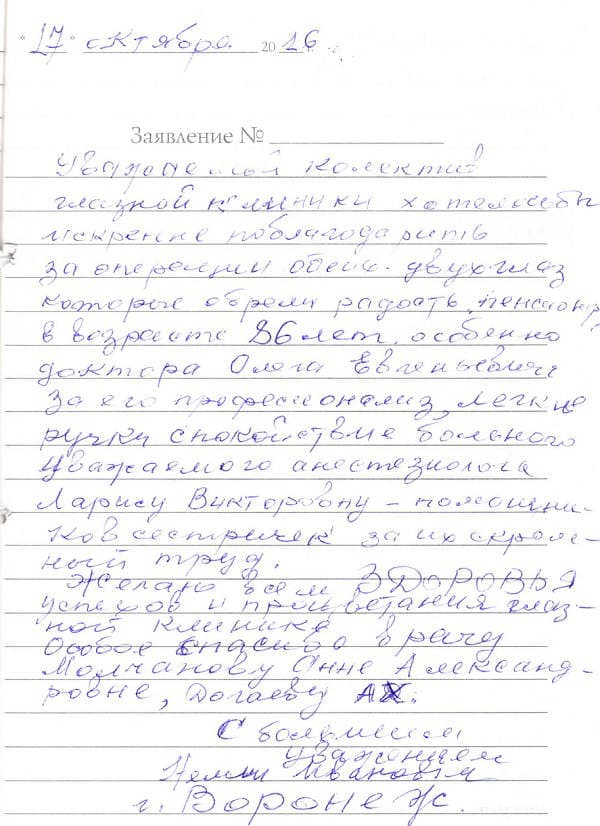 "17" октября 2016
Заявление №
Уважаемый колектив
глазной клиники хотелось бы
искренне поблагодарить
за операции обеих двух глаз
которые обрели радость, пенсионер,
в возрасте 86 лет, особенно
доктора Олега Евгеньевича
за его професионализ, легкие
ручки спокойствие больного
уважаемого анестезиолога
Ларису Викторовну - помощни-
ков сестричек за их скром-
ный труд.
Желаю всем ЗДОРОВЬЯ
успехов и процветания глаз-
ной клинике
Особое спасибо врачу
Молчанову Анне Александ-
ровне, Догаеву
С большим
уважением
Ивановы
г. Воронеж.